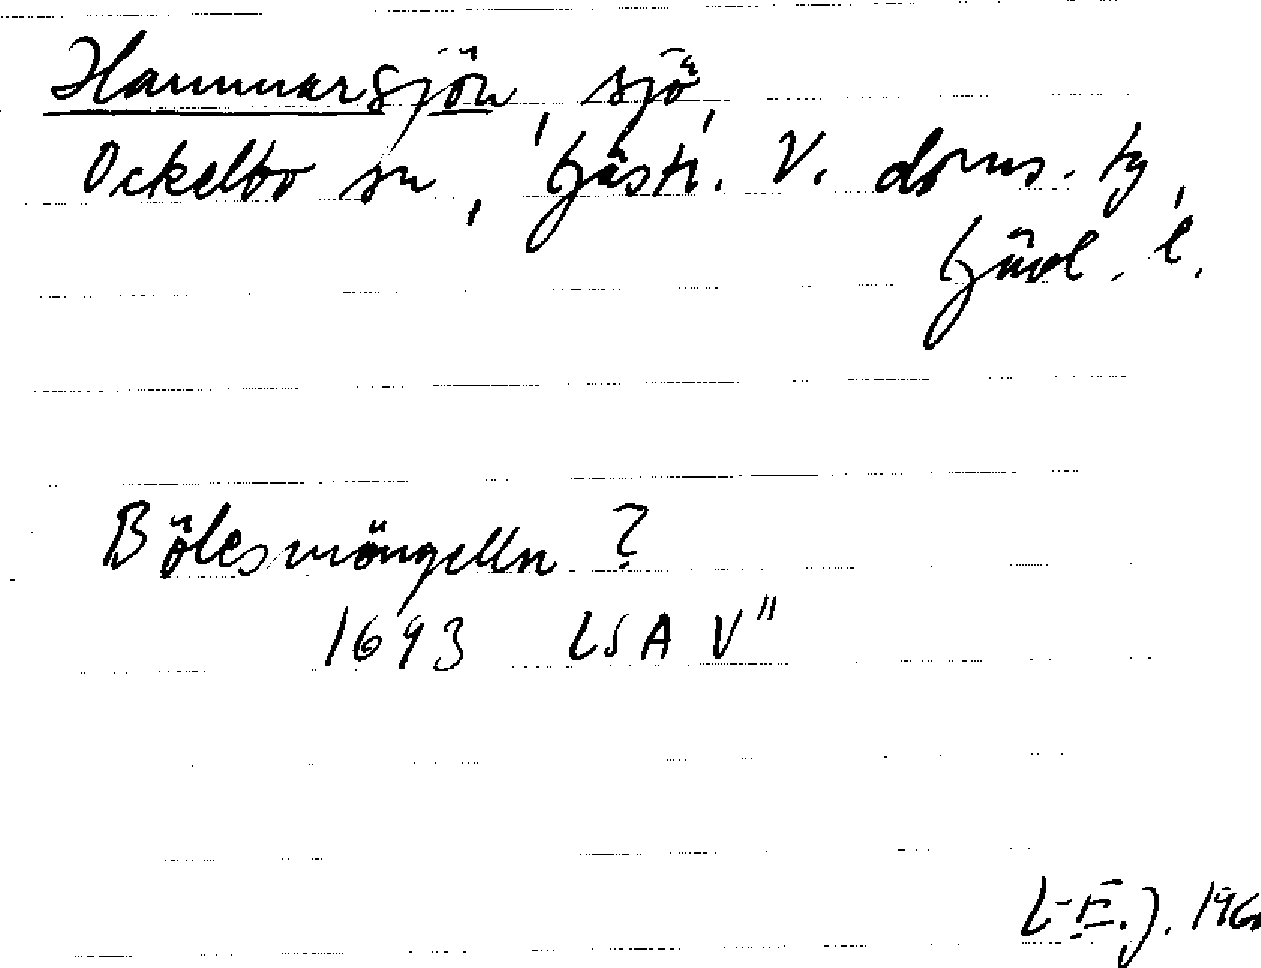 Hammarsjön, sjö,
Ockelbo sn, Gästr. V. doms. tg,
Gävl. l.
Bölesmöngelln ?
1693 LSA V"
L-E.J. 196